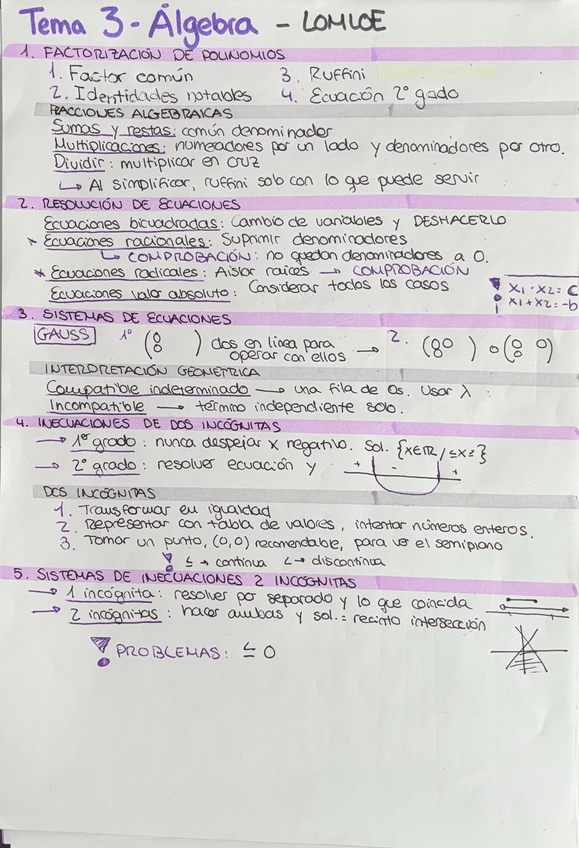 Tema 3 - Álgebra - LOMLOE
1. FACTORIZACIÓN DE POLINOMIOS
1. Factor común 3. Ruffini
2. Identidades notables 4. Ecuación 2º gado
FRACCIONES ALGEBRAICAS
Sumas y restas: común denominador
Multiplicaciones: numeradores por un lado y denominadores por otro.
Dividir: multiplicar en cruz
↳ Al simplificar, ruffini solo con lo que puede servir
2. RESOLUCIÓN DE ECUACIONES
Ecuaciones bicuadradas: Cambio de variables y DESHACERLO
* Ecuaciones racionales: Suprimir denominadores
↳ COMPROBACIÓN: no quedan denominadores a 0.
* Ecuaciones radicales: Aislar raíces → COMPROBACIÓN
Ecuaciones valor absoluto: Considerar todos los casos
! x1 · x2 = c
x1 + x2 = -b
3. SISTEMAS DE ECUACIONES
GAUSS 1º (0 0 ) dos en línea para operar con ellos → 2. (0 0 0 ) o (0 0 0)
INTERPRETACIÓN GEOMÉTRICA
Compatible indeterminado → una fila de 0s. Usar λ
Incompatible → término independiente solo.
4. INECUACIONES DE DOS INCÓGNITAS
→ 1º grado: nunca despejar x negativo. Sol. {x∈ℝ / ≤x≥}
→ 2º grado: resolver ecuación y + - +
DOS INCÓGNITAS
1. Transformar en igualdad
2. Representar con tabla de valores, intentar números enteros.
3. Tomar un punto, (0,0) recomendable, para ver el semiplano
! ≤ → continua < → discontinua
5. SISTEMAS DE INECUACIONES 2 INCÓGNITAS
→ 1 incógnita: resolver por separado y lo que coincida
→ 2 incógnitas: hacer ambas y sol. = recinto intersección
! PROBLEMAS: ≤ 0